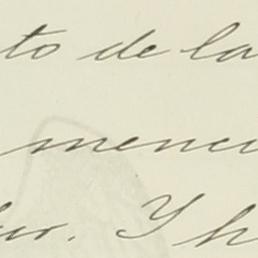 to de la
menci
ar. Y h